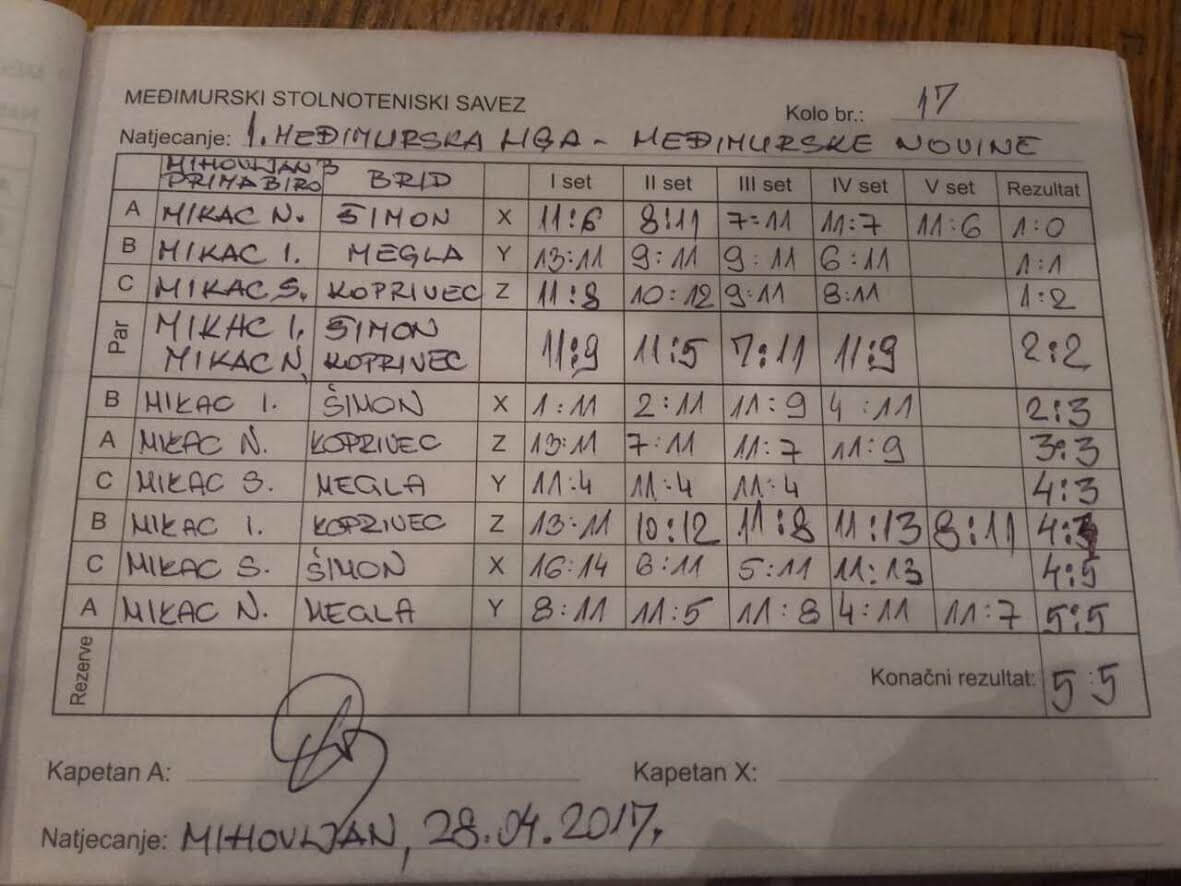 MEĐIMURSKI STOLNOTENISKI SAVEZ
Kolo br.: 17
Natjecanje: 1. MEĐIMURSKA LIGA - MEĐIMURSKE NOVINE
MIHOVLJAN B PRIMA BIRO BRID I set II set III set IV set V set Rezultat
A MIKAC N. ŠIMON X 11:6 8:11 7:11 11:7 11:6 1:0
B MIKAC I. MEGLA Y 13:11 9:11 9:11 6:11 1:1
C MIKAC S. KOPRIVEC Z 11:8 10:12 9:11 8:11 1:2
Par MIKAC I. ŠIMON
MIKAC N. KOPRIVEC 11:9 11:5 7:11 11:9 2:2
B MIKAC I. ŠIMON X 1:11 2:11 11:9 4:11 2:3
A MIKAC N. KOPRIVEC Z 13:11 7:11 11:7 11:9 3:3
C MIKAC S. MEGLA Y 11:4 11:4 11:4 4:3
B MIKAC I. KOPRIVEC Z 13:11 10:12 11:8 11:13 8:11 4:4
C MIKAC S. ŠIMON X 16:14 6:11 5:11 11:13 4:5
A MIKAC N. MEGLA Y 8:11 11:5 11:8 4:11 11:7 5:5
Rezerve Konačni rezultat: 5:5
Kapetan A: Kapetan X:
Natjecanje: MIHOVLJAN, 28.04.2017.